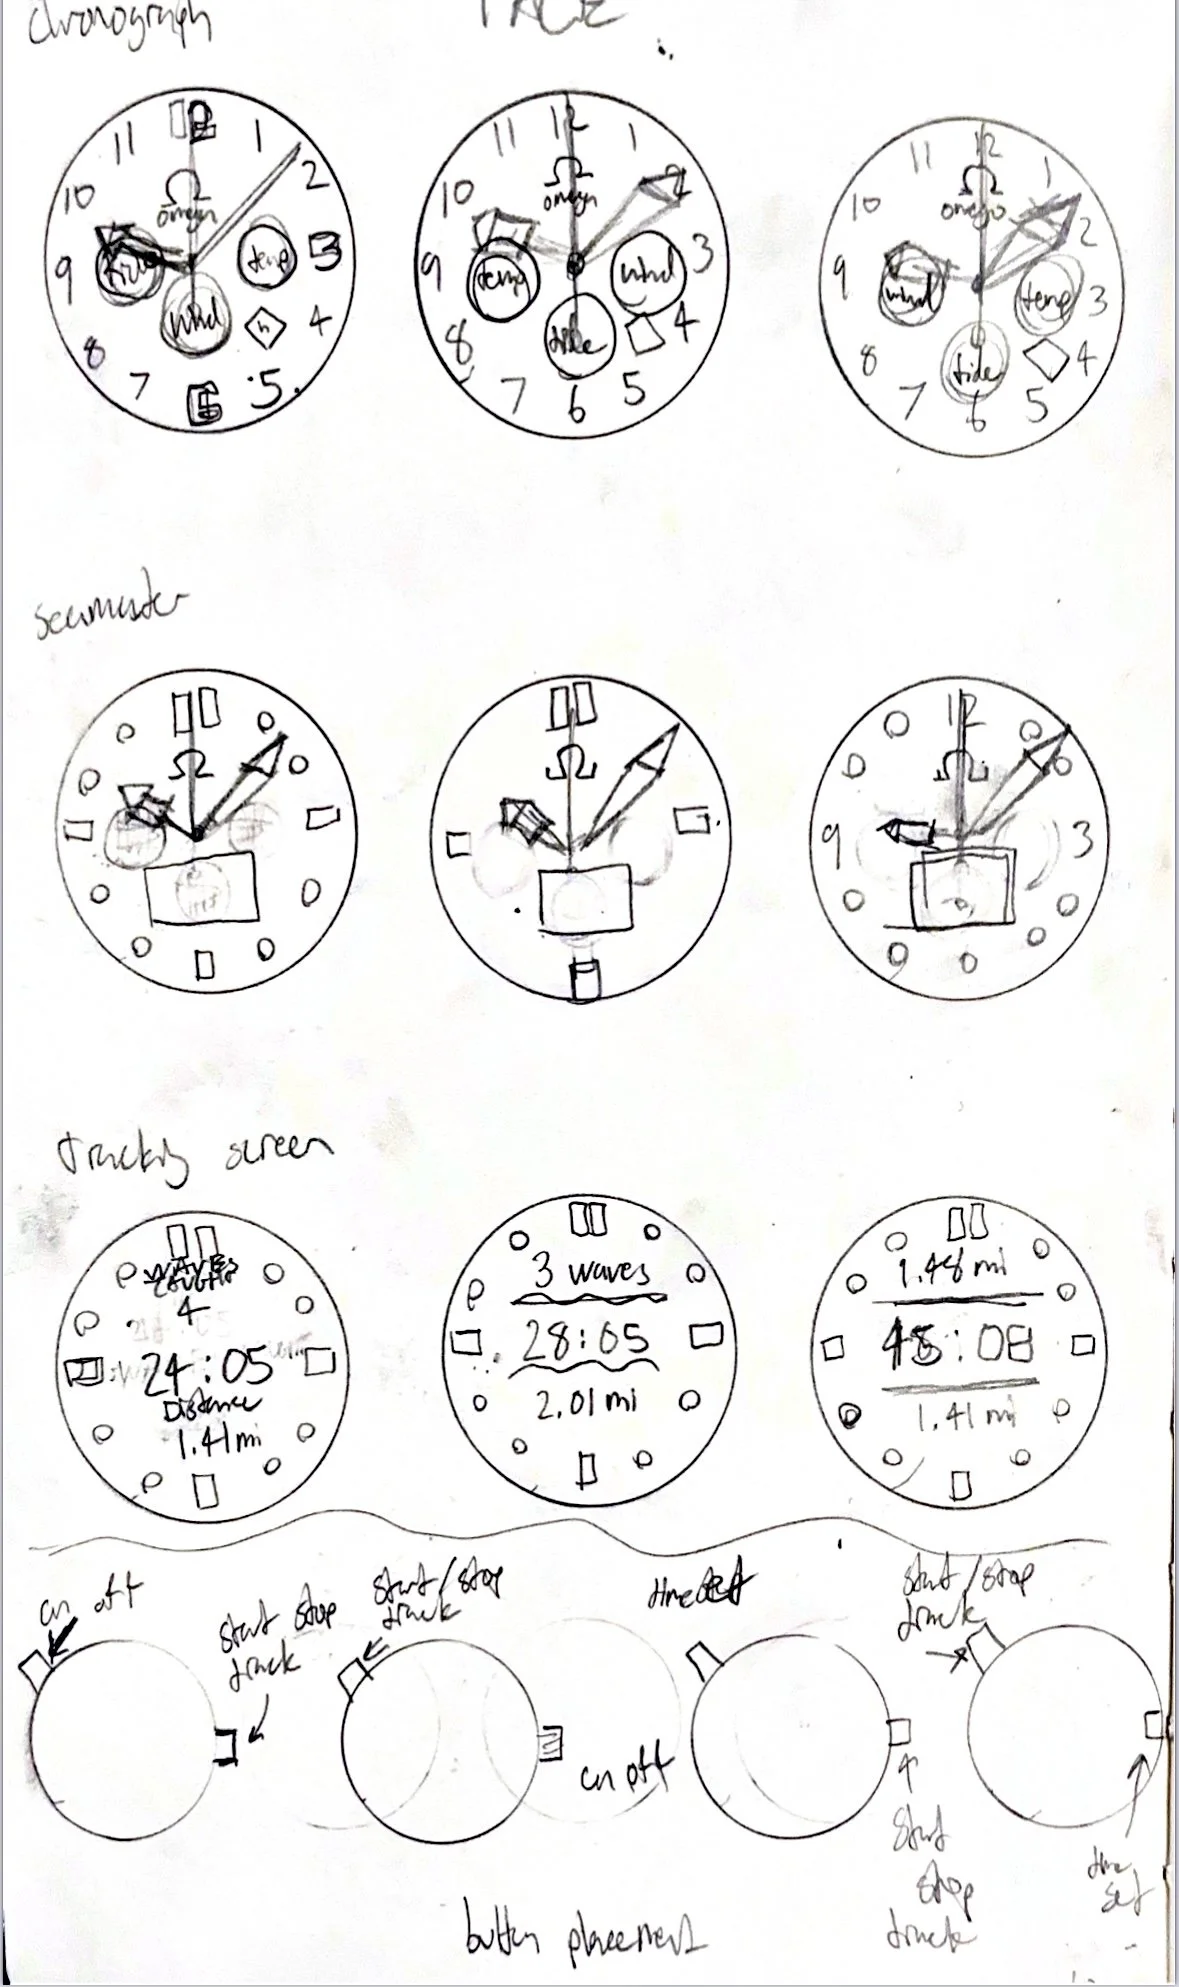 Chronograph
FACE
12
11 1
10 2
Ω
omega
9 tide temp 3
wind
8 h 4
7 5
6
12
11 1
10 2
Ω
omega
9 temp wind 3
tide
8 4
7 5
6
12
11 1
10 2
Ω
omega
9 wind temp 3
tide
8 4
7 5
6
Seamaster
Ω
Ω
12
Ω
9 3
tracking screen
WAVES
CAUGHT
4
24:05
Distance
1.41mi
3 waves
28:05
2.01 mi
1.48 mi
45:08
1.41 mi
on off
start stop
track
start/stop
track
on off
time set
start
stop
track
start/stop
track
time
set
button placement